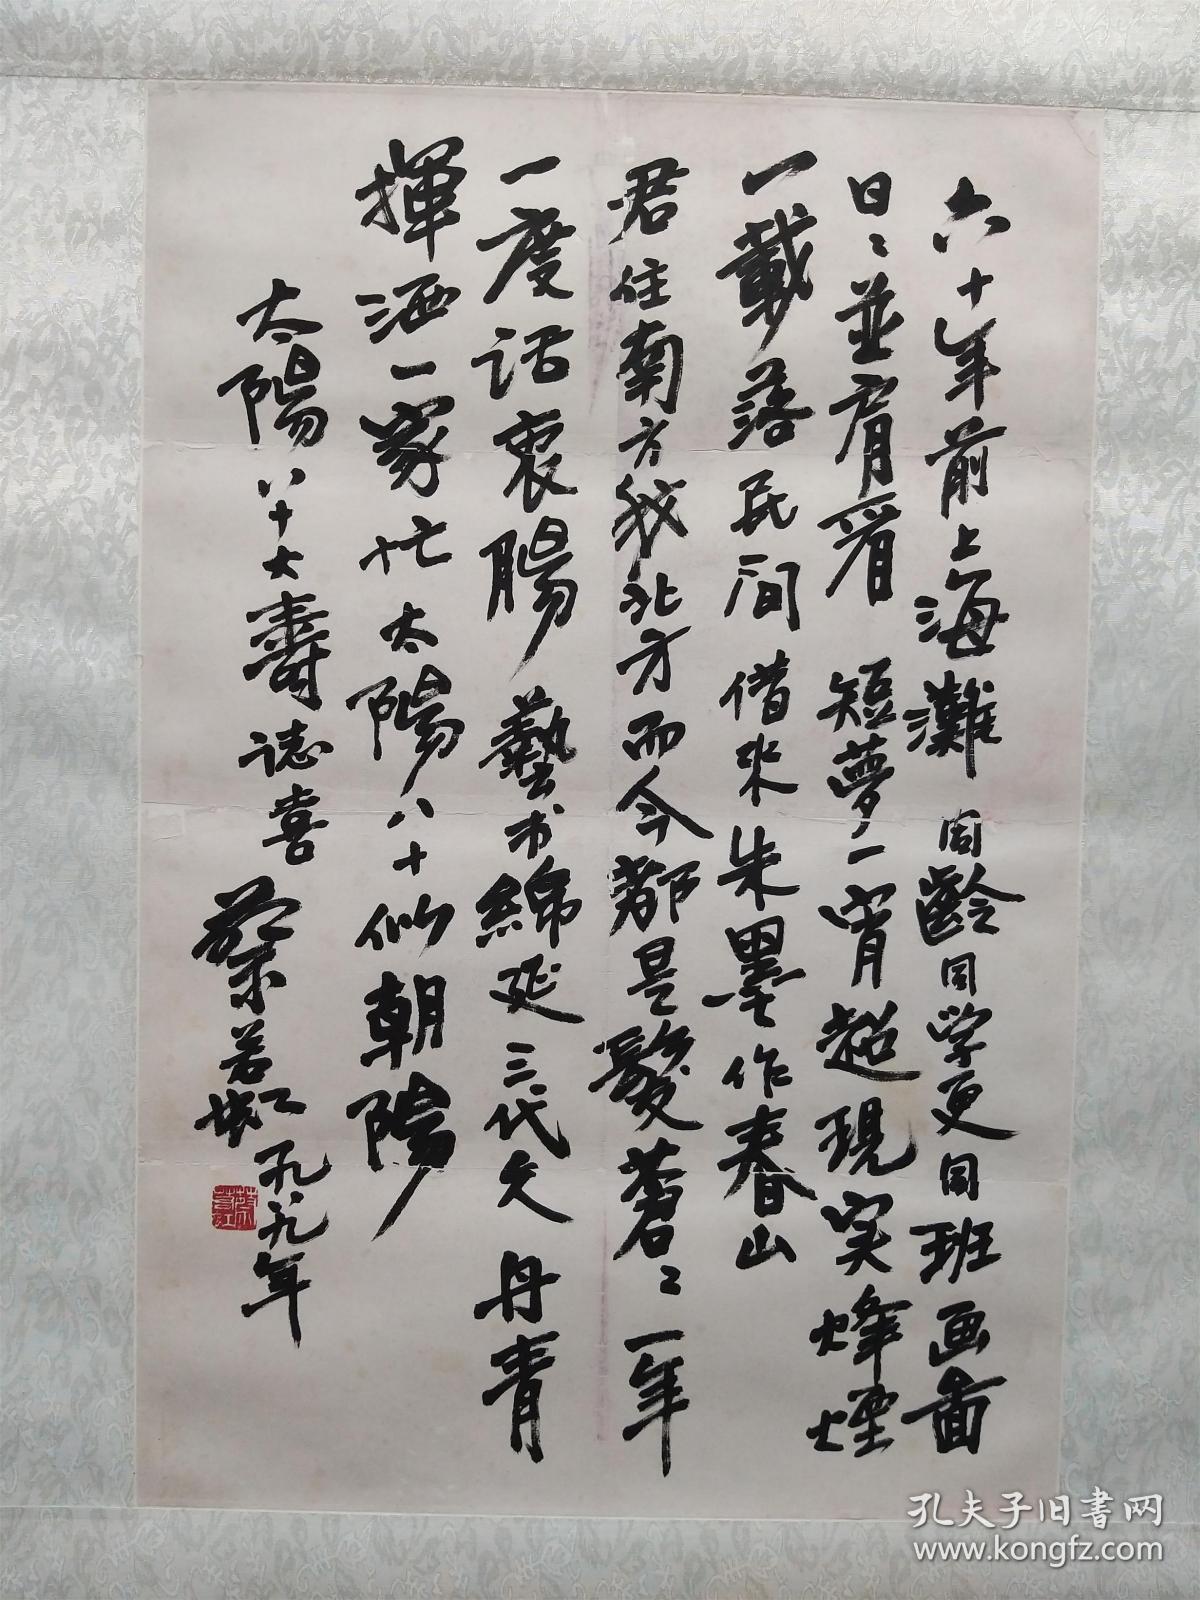 六十年前上海灘同齡同学更同班画面
日〻並肩看短夢一宵超現实烽煙
一載落民间借来朱墨作春山
君住南方我北方而今都是鬓蒼〻一年
一度话衷腸藝术綿延三代久丹青
揮洒一家忙太陽八十似朝陽
太陽八十大壽誌喜
蔡若虹
一九八九年
蔡若虹
孔夫子旧书网
www.kongfz.com